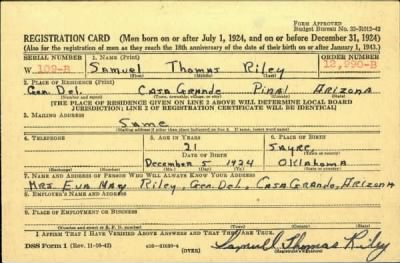 Form Approved
Budget Bureau No. 33-R012-42
REGISTRATION CARD (Men born on or after July 1, 1924, and on or before December 31, 1924)
(Also for the registration of men as they reach the 18th anniversary of the date of their birth on or after January 1, 1943.)
SERIAL NUMBER 1. NAME (Print) ORDER NUMBER
W 102-B Samuel Thomas Riley 12,990-B
(First) (Middle) (Last)
2. PLACE OF RESIDENCE (Print)
Gen. Del. Casa Grande Pinal Arizona
(Number and street) (Town, township, village, or city) (County) (State)
[THE PLACE OF RESIDENCE GIVEN ON LINE 2 ABOVE WILL DETERMINE LOCAL BOARD
JURISDICTION; LINE 2 OF REGISTRATION CERTIFICATE WILL BE IDENTICAL]
3. MAILING ADDRESS
Same
[Mailing address if other than place indicated on line 2. If same, insert word same]
4. TELEPHONE 5. AGE IN YEARS 6. PLACE OF BIRTH
21 Sayre
DATE OF BIRTH (Town or county)
December 5 1924 Oklahoma
(Exchange) (Number) (Mo.) (Day) (Yr.) (State or country)
7. NAME AND ADDRESS OF PERSON WHO WILL ALWAYS KNOW YOUR ADDRESS
Mrs. Eva May Riley, Gen. Del., Casa Grande, Arizona
8. EMPLOYER'S NAME AND ADDRESS
9. PLACE OF EMPLOYMENT OR BUSINESS
(Number and street or R. F. D. number) (Town) (County) (State)
I AFFIRM THAT I HAVE VERIFIED ABOVE ANSWERS AND THAT THEY ARE TRUE.
DSS Form 1 (Rev. 11-16-42) (OVER) Samuel Thomas Riley